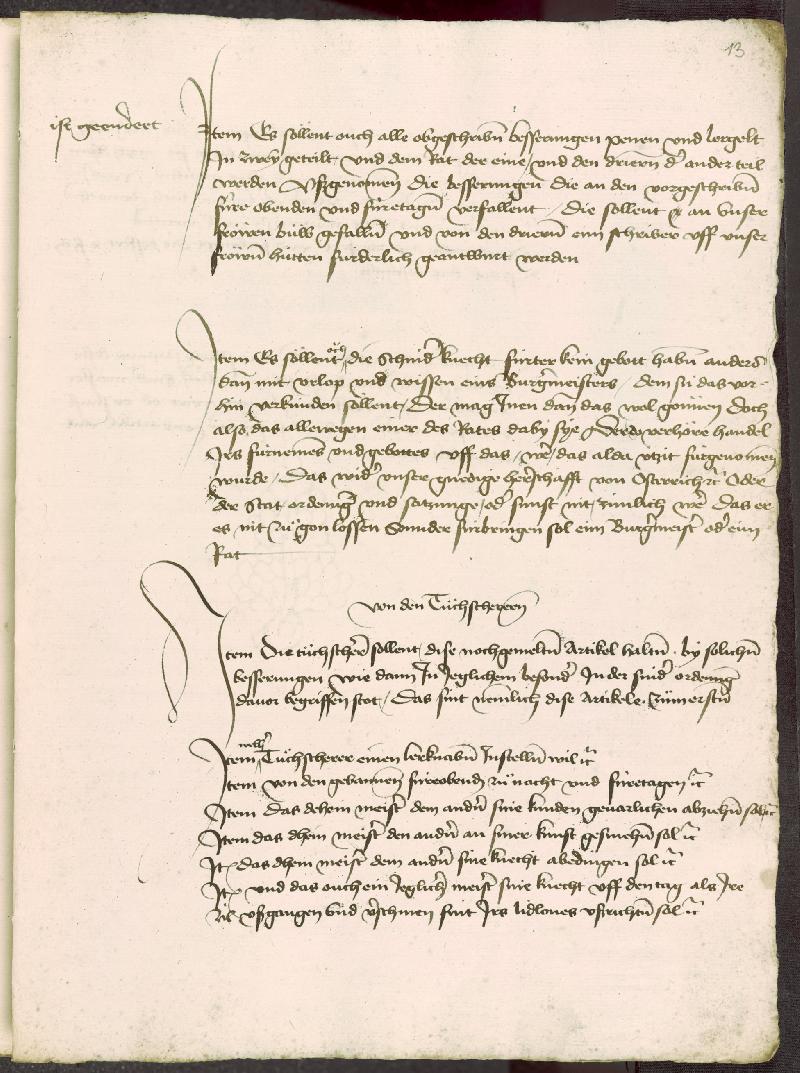 13
ist geendert
Item Es söllent ouch alle obgeschribn̄ besserungen penen vnd lergelt
In zwey geteilt vnd dem Rat der eine / vnd den driern d' ander teil
werden Vsgenomen die besserungen die an den vorgeschribn̄
fire obenden vnd firetagn̄ verfallent / die sollent an vnser
fröwen buw gefalln̄ vnd von den driern̄ eim schriber vff vnser
fröwn̄ hütten fúrderlich geantwurt werden
Item Es söllent ouch die Schnid' knecht fúrter kein gebott habn̄ anders
dan̄ mit vrlop vnd wissen eins Burgmeisters / dem sú das vor-
hin verkúnden sollent / Der mag Inen dan̄ das wol gönnen Doch
also das allewegen einer des Rates daby sye der do verhöre handel
Irs fúrnemens vnd gebottes vff das / wer das alda útzit fúrgenomen
wurde / Das wid' vnser gnedige herschafft von Osterrich rc Oder
der Stat ordenung vnd satzunge / od' sunst nit zimlich wer Das er
es nit zü gon lossen Sonnder fúrbringen sol eim Burgmeist' od' eim
Rat
von den Tüchscherern
Item Die tüchscherer sollent / dise nochgemeltn̄ Artikel haltn̄ . by solichn̄
besserungen wie dann In Jeglichem besond' In der snid' ordenung
davor begriffen stot / Das sint nemlich dise Artikele. Zum erstn̄
Item welh' Tüchscherer einen lerknabn̄ Instelln̄ wil rc
Item von den gebannen firobende zü nacht vnd firetagen rc
Item das dehein meist' dem andn̄ sine kunden geuarlichen abziehn̄ sol rc
Item das dhein meist' den andn̄ an siner kunst gesmehn̄ sol rc
It das dhein meist' dem andn̄ sine knecht abedingen sol rc
It vnd das ouch ein Jeglich' meist' sine knecht vff den tag als Jre
Zil vsgangen vnd verschinen sint Irs lidlones vsrichtn̄ sol rc